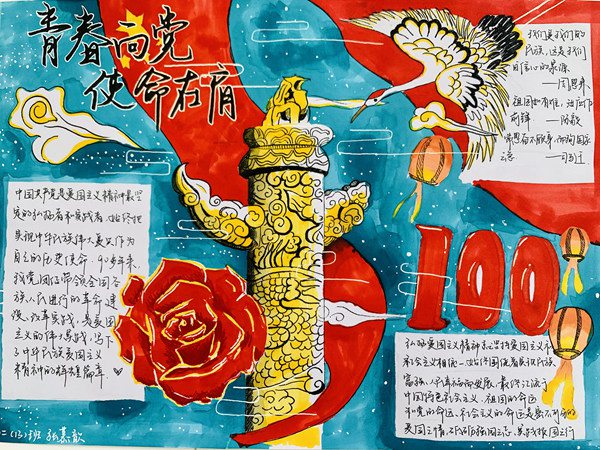 青春向党
使命在肩
我们爱我们的
民族，这是我们
自信心的泉源
——周恩来
祖国如有难，汝应作
前锋 ——陈毅
常思奋不顾身，而殉国家
之急 ——司马迁
中国共产党是爱国主义精神最坚
定的弘扬者和实践者，始终把
实现中华民族伟大复兴作为
自己的历史使命，90多年来，
我党团结带领全国各
族人民进行的革命、建
设、改革实践，是爱国
主义的伟大实践，写下
了中华民族爱国主义
精神的辉煌篇章。
100
弘扬爱国主义精神，必须坚持爱国主义和
社会主义相统一，始终围绕着实现民族
富强、人民幸福而发展，最终汇流于
中国特色社会主义。祖国的命运
和党的命运、社会主义的命运是密不可分的
爱国之情，砥砺强国之志，实践报国之行
二（13）班 张慕歆